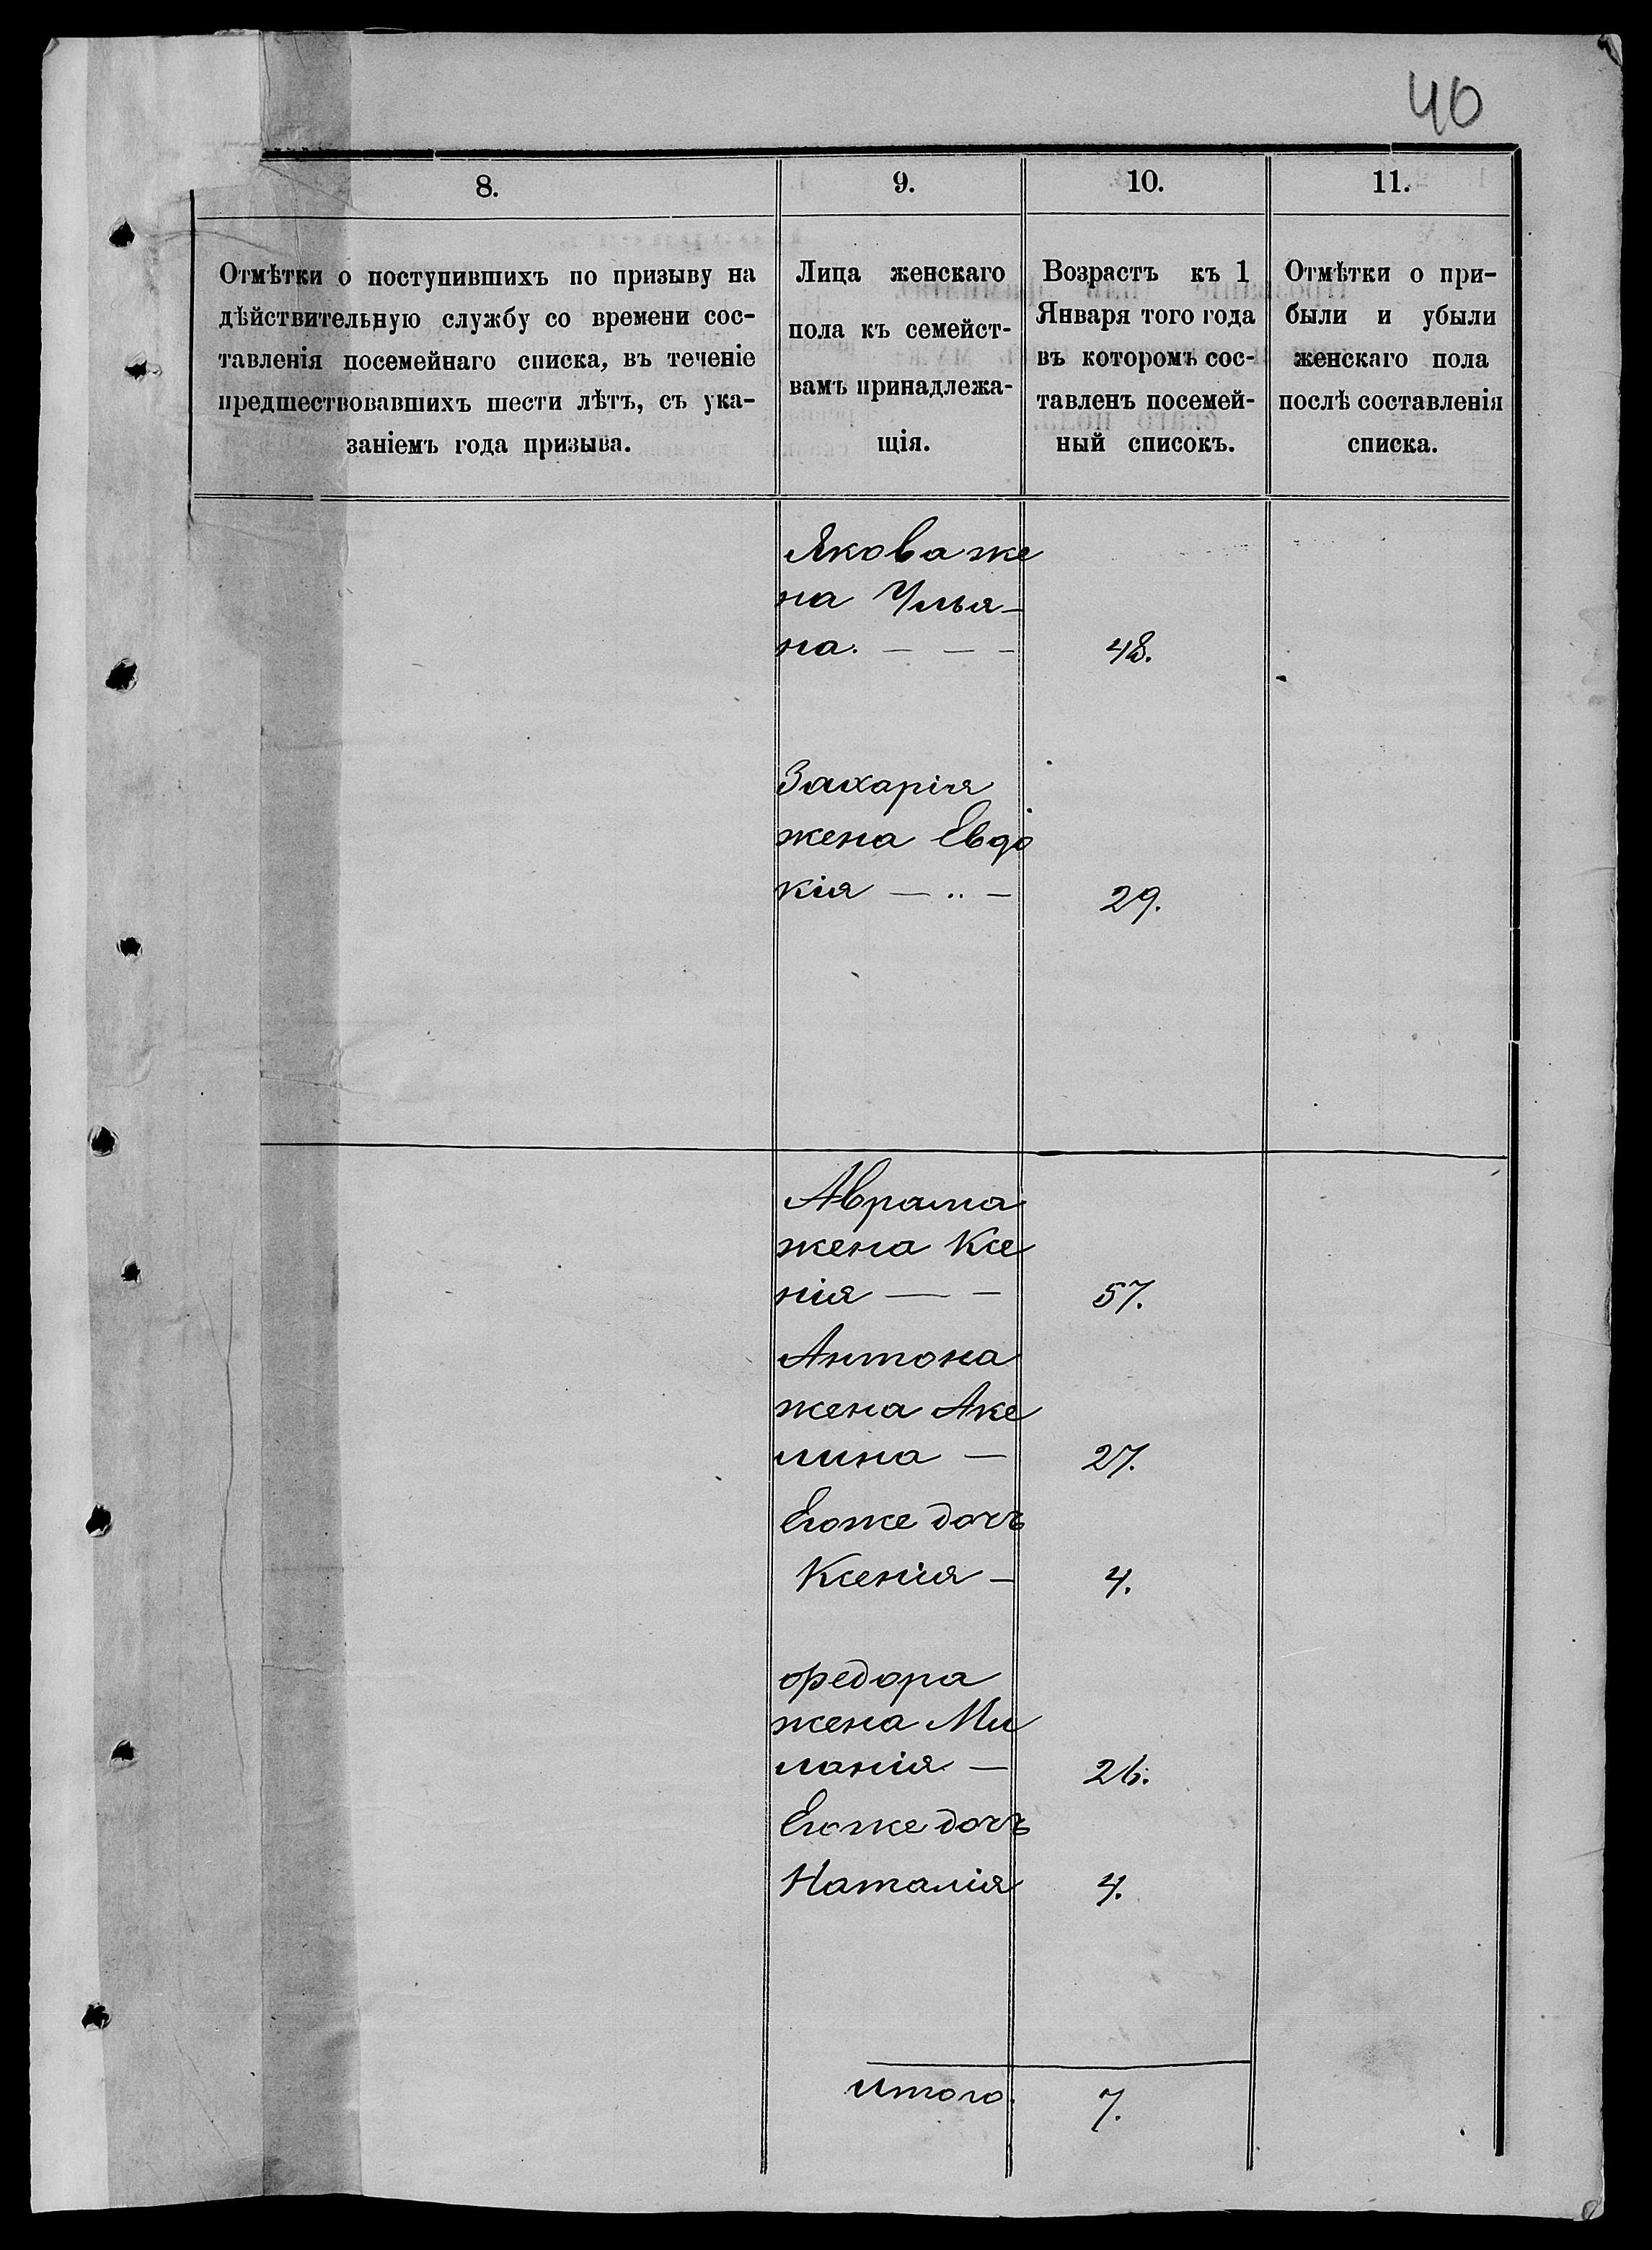 40
8.
9.
10.
11.
Отмѣтки о поступившихъ по призыву на
дѣйствительную службу со времени сос-
тавленія посемейнаго списка, въ теченіе
предшествовавшихъ шести лѣтъ, съ ука-
заніемъ года призыва.
Лица женскаго
пола къ семейст-
вамъ принадлежа-
щія.
Возрастъ къ 1
Января того года
въ которомъ сос-
тавленъ посемей-
ный списокъ.
Отмѣтки о при-
были и убыли
женскаго пола
послѣ составленія
списка.
Якова же
на Улья-
на. — — — 48.
Захарія
жена Евдо
кія — .. — 29.
Аврама
жена Ксе
нія — — 57.
Антона
жена Аке
лина — 27.
Егоже дочъ
Ксенія — 4.
Федора
жена Ми
ланія — 26.
Егоже дочъ
Наталія 4.
Итого. 7.